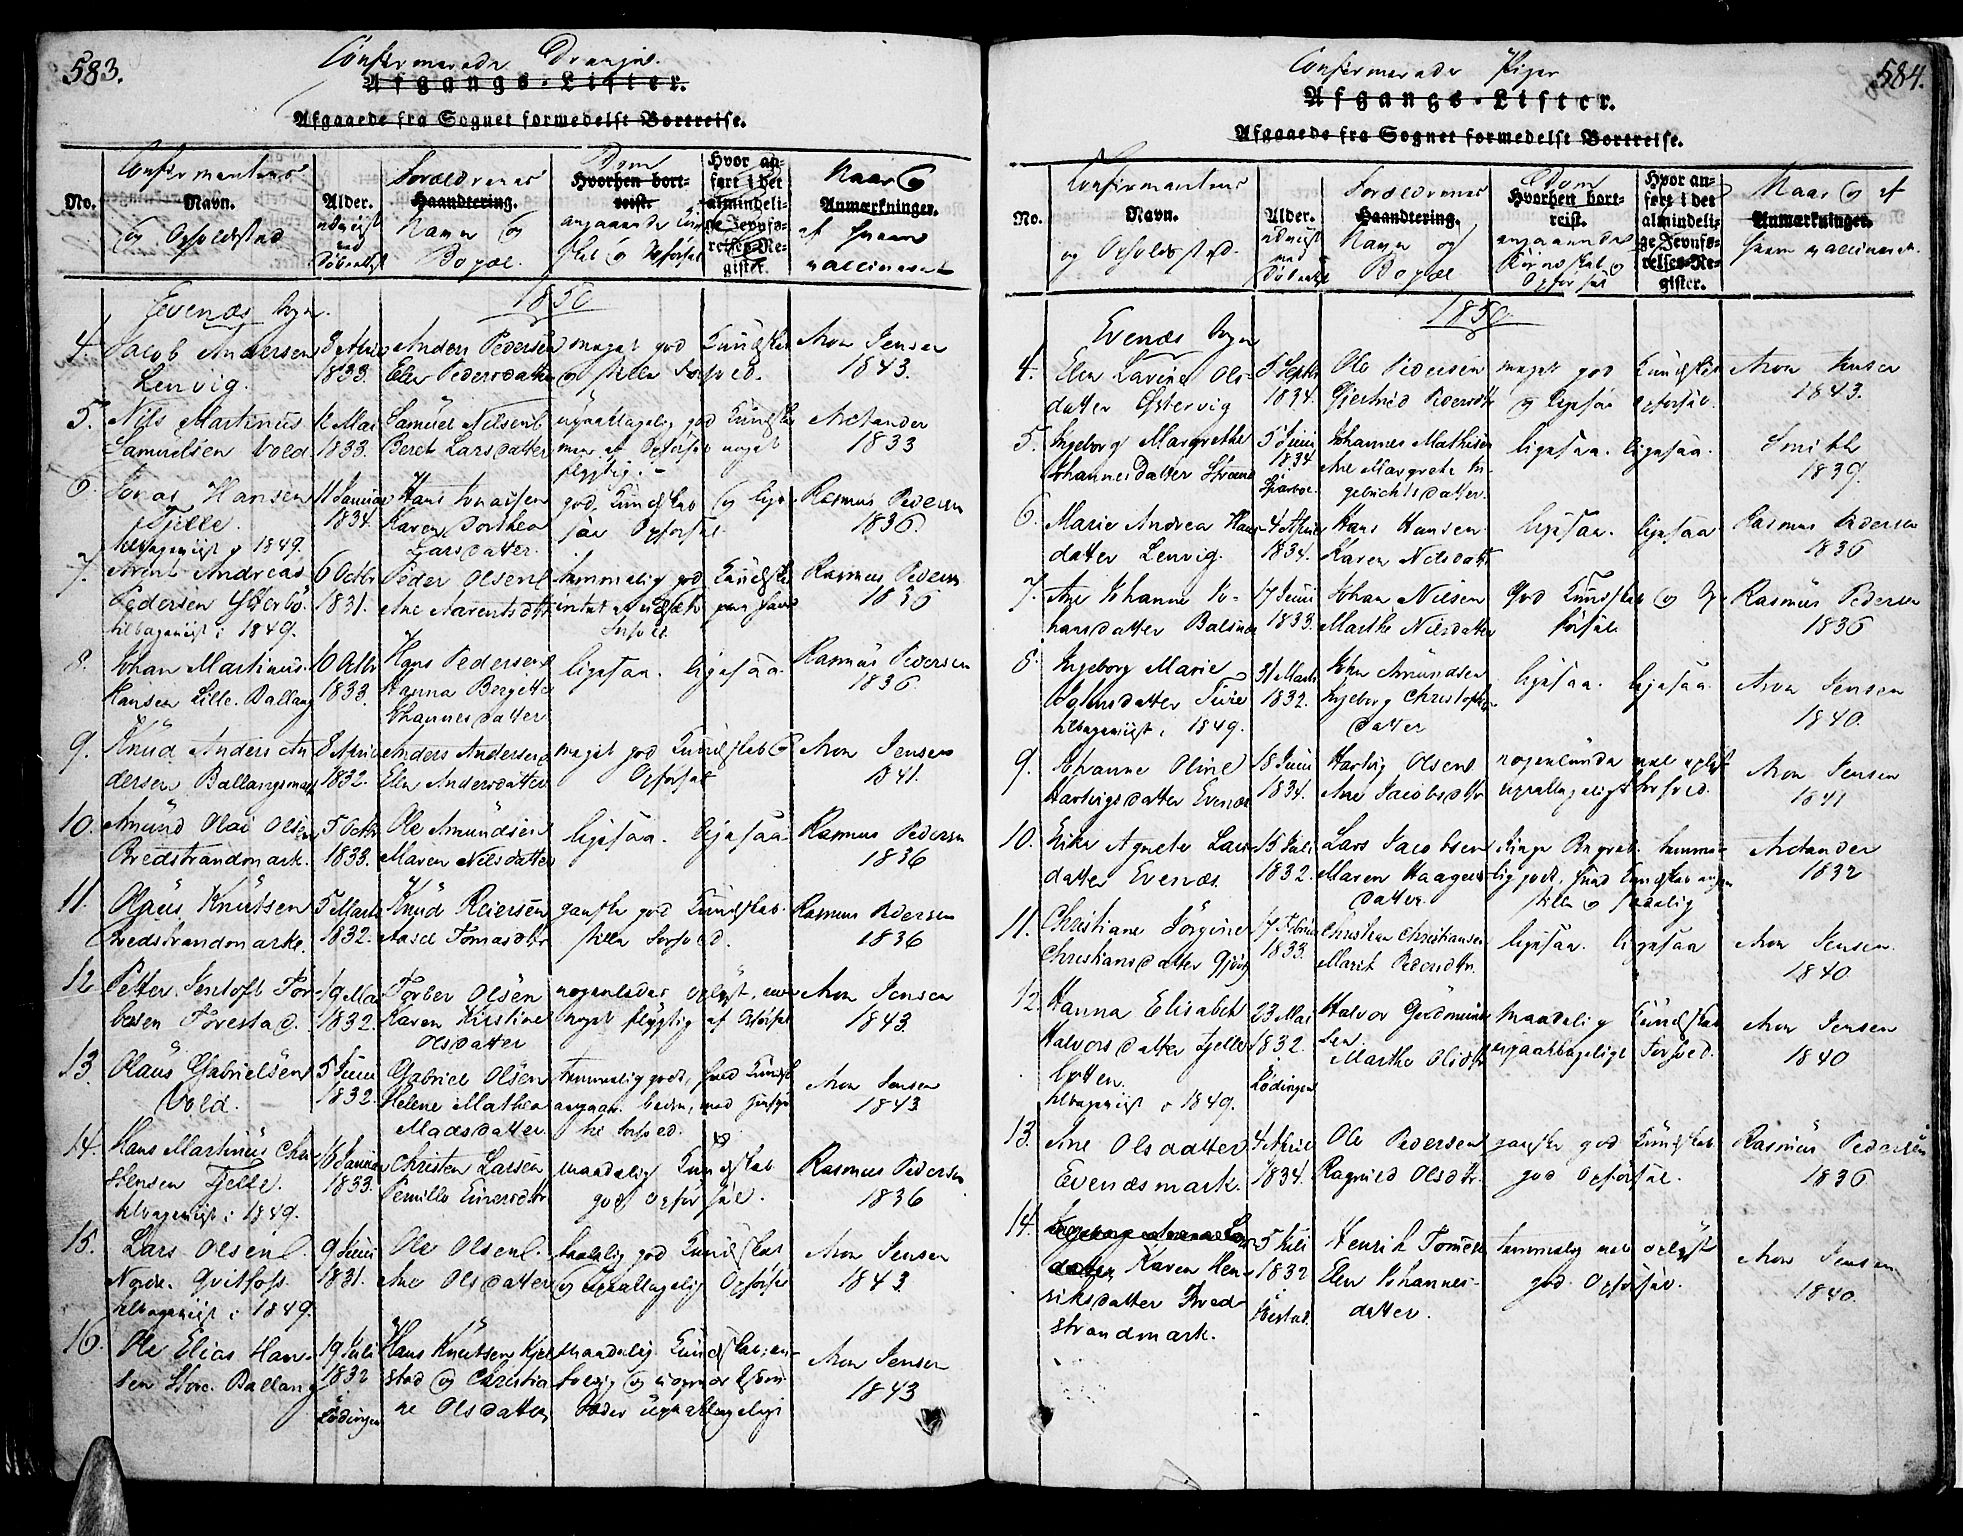 583.
Confirmerede Drenge.
Afgangs-Lister.
Afgaaede fra Sognet formedelst Bortreise.
No.
Confirmantens
Navn.
og Opholdsted
Alder.
Forældrenes
Haandtering.
Navn og
Bopæl.
Dom
Hvorhen bort-
reist.
angaaende
og Opførsel
Hvor an-
ført i det
almindeli-
ge Jevnfø-
relses-Re-
gister.
Naar og
Anmærkninger.
af hvem
vaccineret
Evenæs Sogn.
1850
4. Jacob Andersen
Lenvig.
8 April
1833.
Anders Pedersen
Elen Pedersdatter
meget god Kundskab
og stille Forhold.
Aron Jensen
1843.
5. Nils Martinus
Samuelsen Vold.
12 Mai
1833.
Samuel Nilsen
Beret Larsdatter
upaaklagelig god Kundskab
men af Opførsel noget
flygtig.
Arctander
1833
6. Jonas Hansen
Fjelle.
tilbageviist 1849.
11 Januar
1834.
Hans Jonassen
Karen Dorthea
Larsdatter.
god Kundskab og lige-
saa Opførsel
Rasmus Pedersen
1836.
7. Arent Andreas
Pedersen
tilbageviist i 1849.
6 Octbr
1831.
Peder Olsen
Ane Aarentsdtr
temmelig god Kundskab
intet at udsætte paa hans
Forhold.
Rasmus Pedersen
1836
8. Johan Martinus
Hansen Lille Ballang
10 Octbr
1833.
Hans Pedersen
Hanna Bergitte
Johannesdatter
ligesaa. ligesaa.
Rasmus Pedersen
1836.
9. Knud Anders An
dersen Ballangsmark
8 April
1832.
Anders Andersen
Elen Andersdatter
meget god Kundskab og
Opførsel
Aron Jensen
1841.
10. Amund Olai Olsen
Bredstrandmark.
5 Octbr
1833.
Ole Amundsen
Maren Nilsdatter
ligesaa. ligesaa.
Rasmus Pedersen
1836
11. Olaus Knutsen
Bredstrandmarke.
5 Marts
1832.
Knud Reiersen
Aasel Tomasdtr
ganske god Kundskab.
stille Forhold.
Rasmus Pedersen
1836
12 Petter Jentoft Tor-
bersen Forestad.
19 Mai
1832.
Torber Olsen
Karen Kirstine
Olsdatter
nogenledes oplyst, en
noget flygtig af Opførsel
Aron Jensen
1843.
13. Olaus Gabrielsen
Vold.
5 Juni
1832.
Gabriel Olsen
Helene Mathea
Madsdatter
Temmelig godt,
Forhold.
Aron Jensen
1843
14. Hans Martinus Chri
stensen Fjelle.
tilbageviist i 1849.
16 Januar
1833.
Christen Larsen
Pernille Einersdtr
maadelig Kundskab
god Opførsel.
Rasmus Pedersen
1836
15. Lars Olsen
Nordre Qvitfors
tilbageviist i 1849.
9 Juni
1831.
Ole Olsen
Ane Olsdatter
taalelig god Kundskab
og upaaklagelig Opførsel
Aron Jensen
1843.
16. Ole Elias Han-
sen Store Ballang
19 Juli
1832
i
Lødingen
Hans Knutsen Kjel
stad og Christia
ne Olsdatter
maadelig Kundskab;
upaaklageligt
Aron Jensen
1843
584.
Confirmerede Piger
Afgangs-Lister.
Afgaaede fra Sognet formedelst Bortreise.
No.
Confirmantens
Navn.
og Opholdsted.
Alder.
Forældrenes
Haandtering.
Navn og
Bopæl
Dom
Hvorhen bort-
reist.
angaaende
Kundskab og
Opførsel
Hvor an-
ført i det
almindeli-
ge Jevnfø-
relses-Re-
gister.
Naar og af
Anmærkninger.
hvem vaccineret.
Evenæs Sogn
1850
4. Elen Lavine Ols-
datter Østervig
5 Septbr
1834.
Ole Pedersen
Gjertrud Pedersdtr
meget god Kundskab
og ligesaa Opførsel.
Aron Jensen
1843.
5. Ingeborg Margrethe
Johannesdatter Strand
5 Juni
1834
Johannes Mathisen
Ane Margrete In-
gebrichtsdatter.
ligesaa. ligesaa.
Smith
1839.
6. Marie Andrea Hans-
datter Lenvig.
4 April
1834.
Hans Hansen
Karen Nilsdatter
ligesaa. ligesaa
Rasmus Pedersen
1836
7. Ane Johanne Jo-
hansdatter Balsnes
17 Juni
1833.
Johan Nilsen
Marthe Nilsdatter
God Kundskab og Op-
førsel
Rasmus Pedersen
1836
8. Ingeborg Marie
Johnsdatter
tilbageviist i 1849.
31 Marts
1832.
John Amundsen
Ingeborg Christophers-
datter
ligesaa. ligesaa.
Aron Jensen
1840.
9. Johanne Oline
Hartvigsdatter Evenæs
18 Juni
1834.
Hartvig Olsen
Ane Jacobsdtr
nogenlunde vel oplyst
upaaklageligt Forhold.
Aron Jensen
1841
10. Agnete Lars
datter Evenæs
15 Juli
1832.
Lars Jacobsen
Maren Haagens-
datter.
Ringe Begreb. temme-
lig godt,
stille og sædelig
Arctander
1832
11. Christiane Jørgine
Christiansdatter
17 Februar
1833.
Christian Christiansen
Marit Pedersdtr.
ligesaa. ligesaa
Aron Jensen
1840
12. Hanna Elisabeth
Halvorsdatter Fjelle-
botten.
tilbageviist i 1849.
23 Mai
1832.
Lødingen
Halvor Gudmund-
sen
Marthe Olsdtr
Maadelig Kundskab
upaaklageligt Forhold.
Aron Jensen
1840
13. Ane Olsdatter
Evenæsmark.
4 April
1834.
Ole Pedersen
Ragnild Olsdtr.
ganske god Kundskab
god Opførsel.
Rasmus Pedersen
1836
14.
Karen Hen-
riksdatter Bred-
strandmark.
5 Juli
1832
i
Henrik Tomesen
Elen Johannes-
datter.
temmelig vel oplyst
god Opførsel.
Aron Jensen
1840.